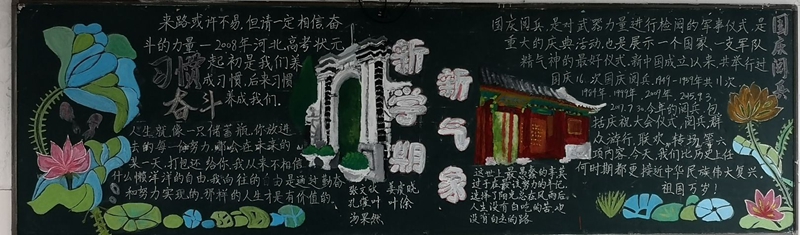 来路或许不易,但请一定相信奋
斗的力量—2008年河北高考状元
习惯
奋斗
起初是我们养
成习惯,后来习惯
养成我们.
人生就像一只储蓄瓶,你放进
去的每一份努力,都会在未来的
某一天,打包还给你.我从来不相信
什么懒洋洋的自由,我向往的自由是通过勤奋
和努力实现的,那样的人生才是有价值的.
新学期
新气象
国庆阅兵
国庆阅兵,是对武器力量进行检阅的军事仪式,是
重大的庆典活动,也是展示一个国家、一支军队
精气神的最好仪式.新中国成立以来共举行过
国庆16次国庆阅兵,1949—1959年共11次
1984年,1999年,2009年,2015.9.3,
2017.7.30
今年的阅兵包
括庆祝大会仪式,阅兵,群
众游行,联欢,转场,第六
项内容,今天,我们比历史上任
何时期都更接近中华民族伟大复兴,
祖国万岁!
这世上最愚蠢的事莫
过于在最该努力的年纪,
选择了
阳光总在风雨后,
人生没有白吃的苦,也
没有白走的路.